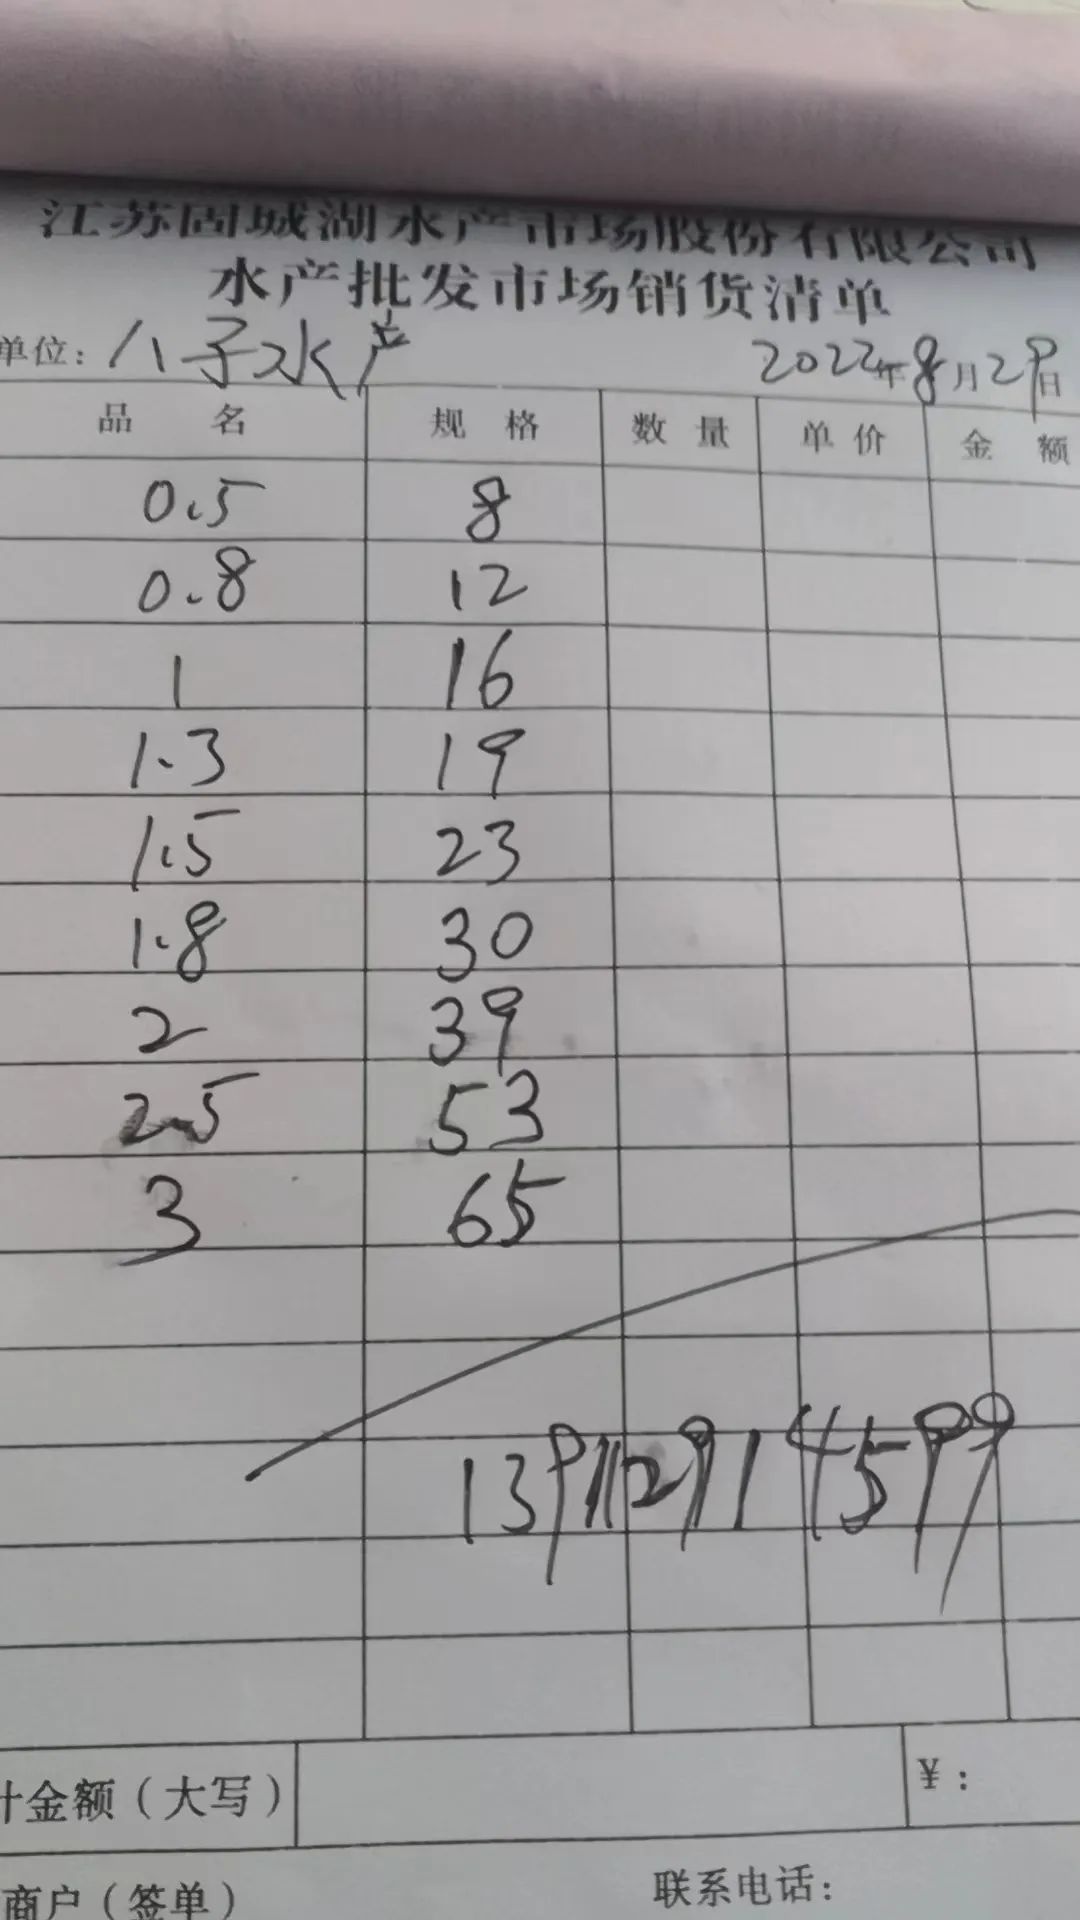 江苏固城湖水产市场股份有限公司
水产批发市场销货清单
单位：八子水产 2022年8月29日
品名 规格 数量 单价 金额
0.5 8
0.8 12
1 16
1.3 19
1.5 23
1.8 30
2 39
2.5 53
3 65
计金额（大写） ￥：
商户（签单） 联系电话：